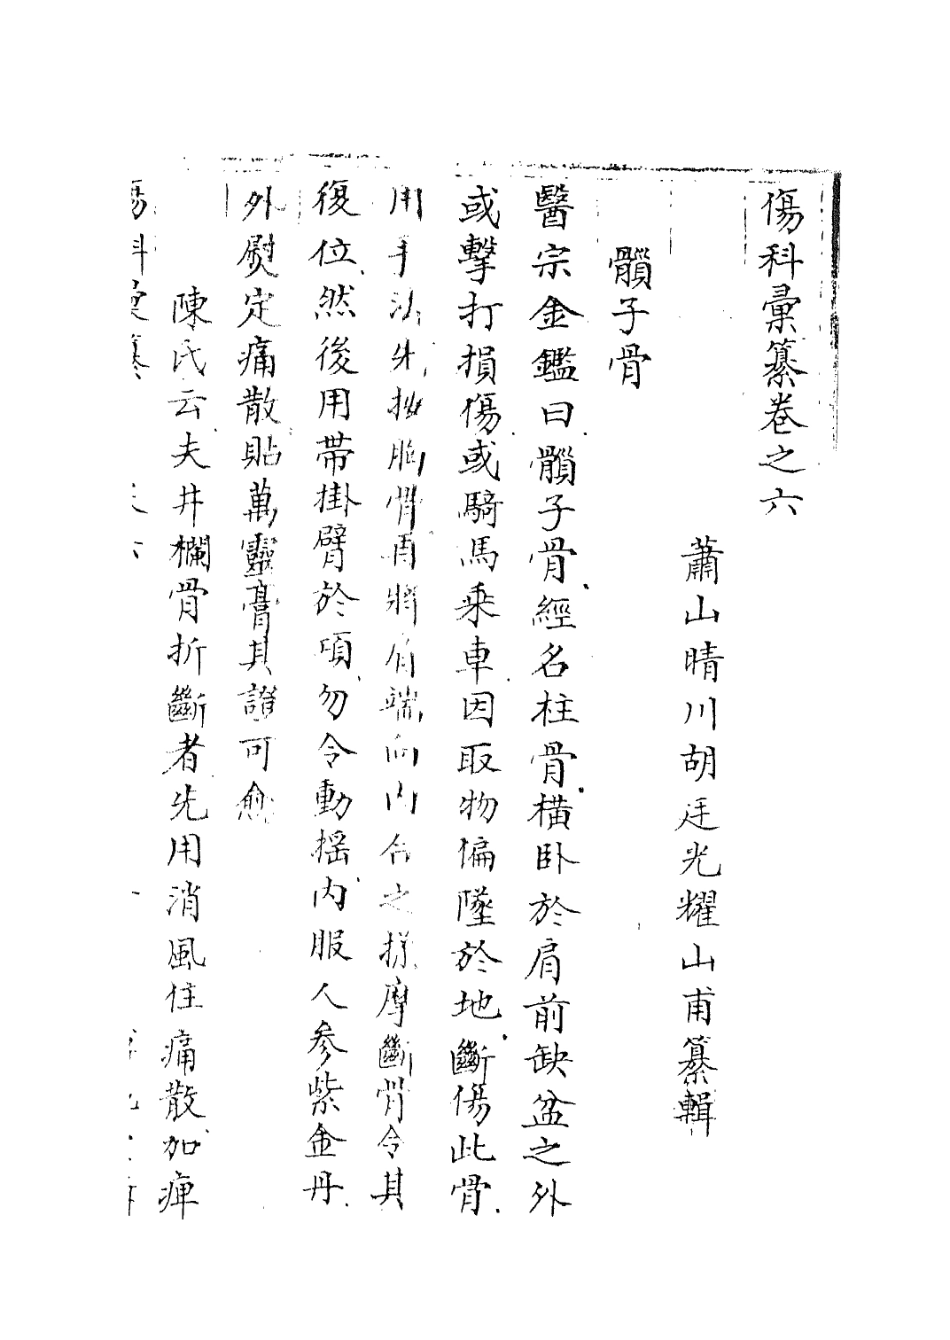 傷科彙纂卷之六
蕭山晴川胡廷光耀山甫纂輯
髃子骨
醫宗金鑑曰髃子骨經名柱骨橫卧於肩前缺盆之外
或擊打損傷或騎馬乘車因取物偏墜於地斷傷此骨
用手法先按胸骨再將肩端向內合之揉摩斷骨令其
復位然後用帶掛臂於項勿令動搖內服人參紫金丹
外熨定痛散貼萬靈膏其證可愈
陳氏云夫井欄骨折斷者先用消風住痛散加痺
傷科彙纂